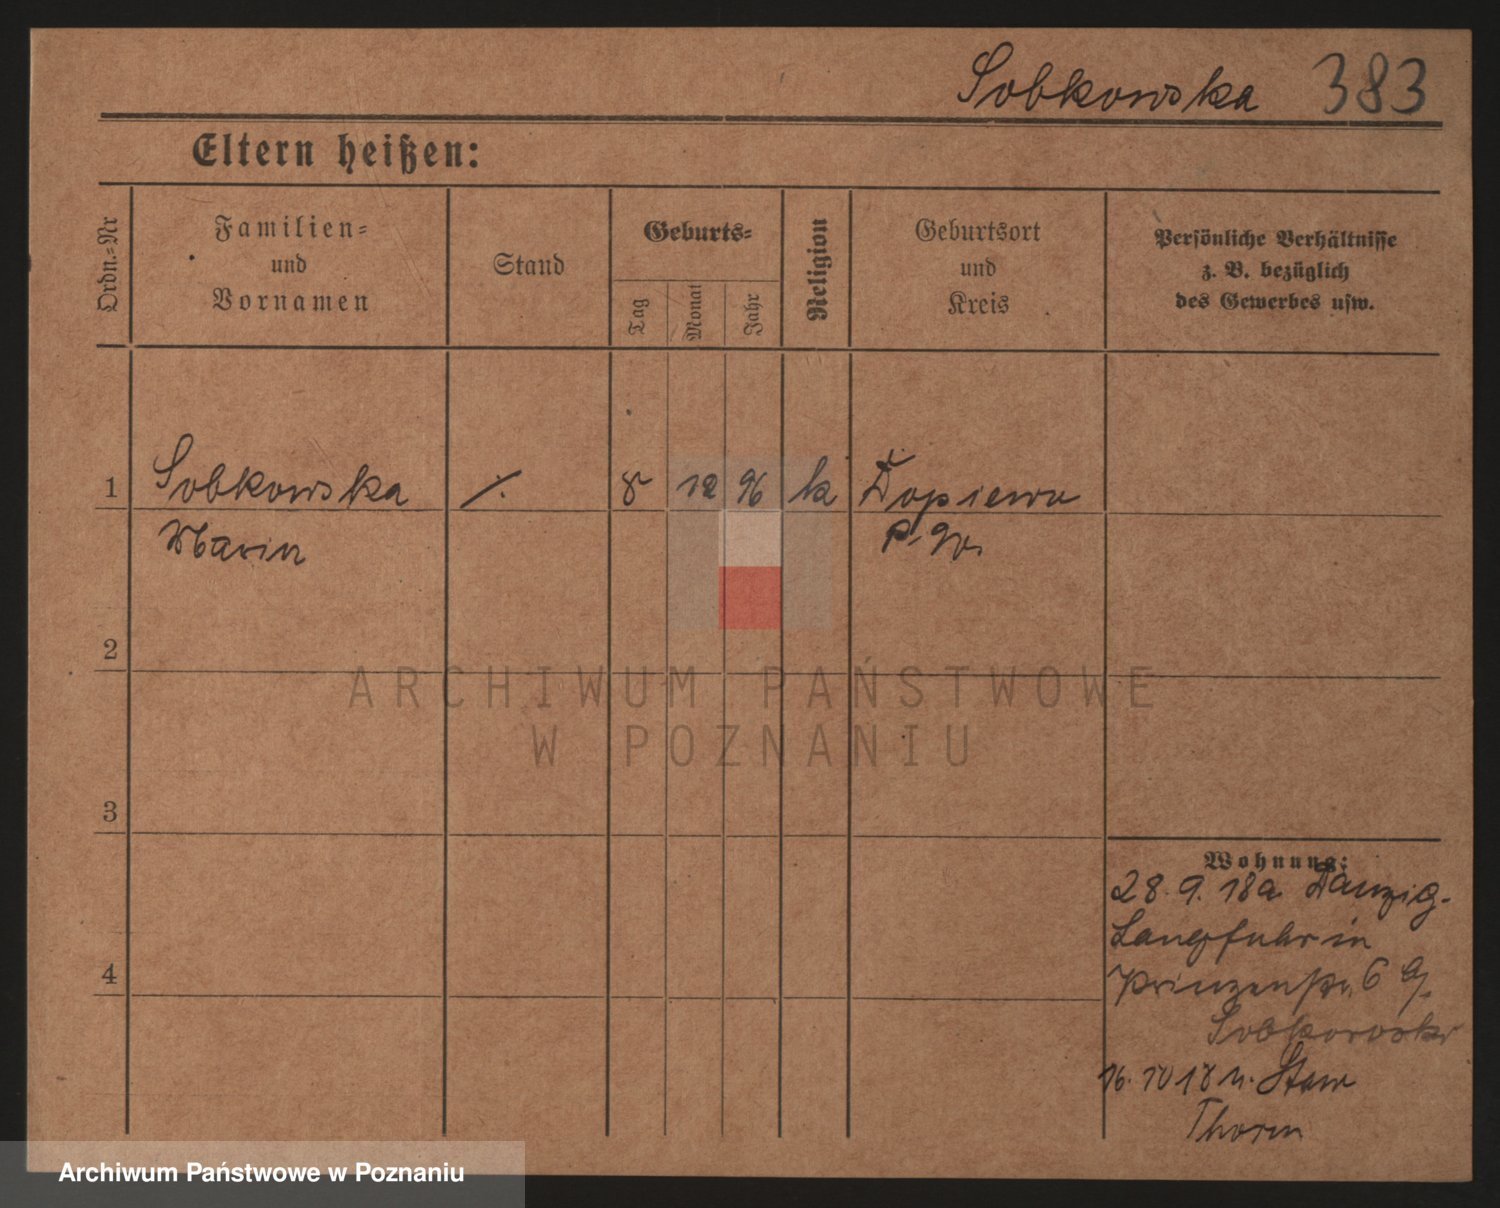 Sobkowska 383
Eltern heißen:
Ordn.=Nr
Familien=
und
Vornamen
Stand
Geburts=
Tag
Monat
Jahr
Religion
Geburtsort
und
Kreis
Persönliche Verhältnisse
z. B. bezüglich
des Gewerbes usw.
1 Sobkowska ·/. 8 12 96 k Dopiewo
Maria P.
2
3
4
Wohnung:
28.9.18 a Danzig-
Langfuhr in
Prinzenstr. 6
Sobkowski
16.10 18 n.
Thorn
ARCHIWUM PAŃSTWOWE
W POZNANIU
Archiwum Państwowe w Poznaniu